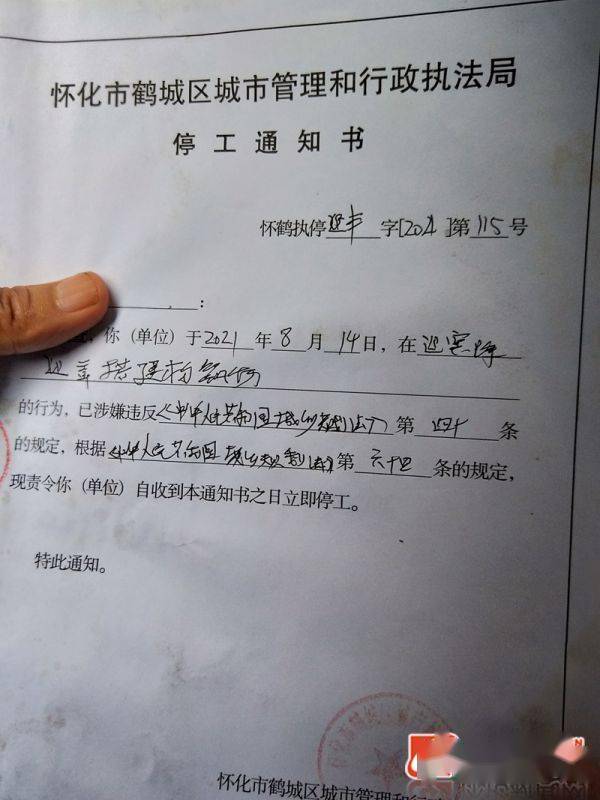 怀化市鹤城区城市管理和行政执法局
停工通知书
怀鹤执停迎丰字[2021]第115号
：
你（单位）于2021年8月14日，在迎宾路
的行为，已涉嫌违反《中华人民共和国城乡规划法》第四十条
的规定，根据《中华人民共和国城乡规划法》第六十四条的规定，
现责令你（单位）自收到本通知书之日立即停工。
特此通知。
怀化市鹤城区城市管理和行